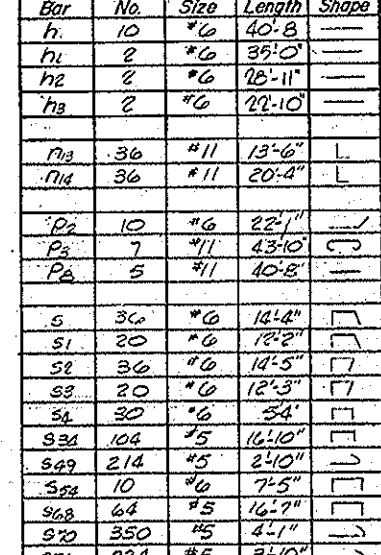 Bar No. Size Length Shape
h 10 #6 40'-8
h1 2 #6 35'-0"
h2 2 #6 28'-11"
h3 2 #6 22'-10"
n13 36 #11 13'-6"
n14 36 #11 20'-4"
p2 10 #6 22'-1"
p3 7 #11 43'-10"
p8 5 #11 40'-8"
s 36 #6 14'-4"
s1 20 #6 12'-2"
s2 36 #6 14'-5"
s3 20 #6 12'-3"
s4 30 #6 5'-4"
s34 104 #5 16'-10"
s49 214 #5 2'-10"
s54 10 #6 7'-5"
s68 64 #5 16'-7"
s70 350 #5 4'-1"
224 #5 3'-10"